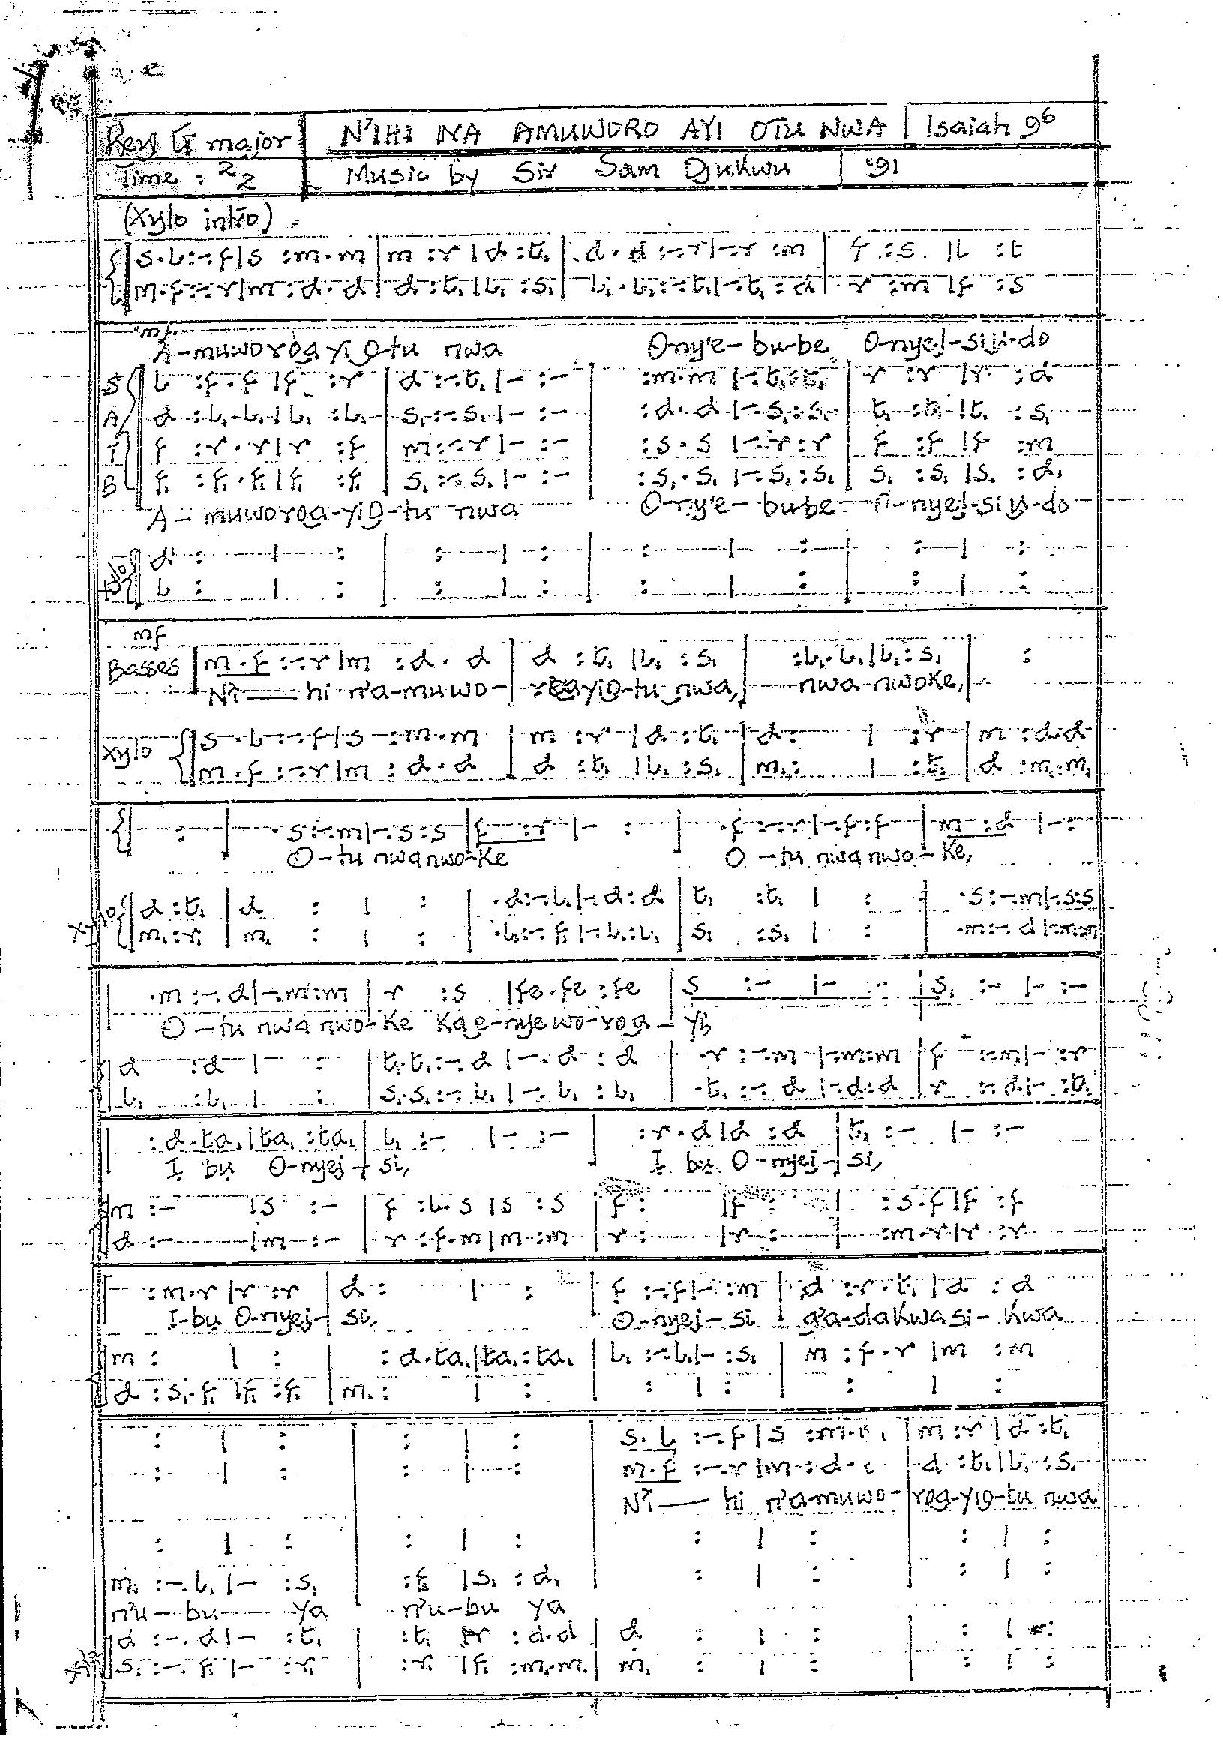 Key G major | N'IHI NA AMUWORO AYI OTU NWA | Isaiah 9⁶
Time : 2/2 | Music by Sir Sam Ojukwu | '91
(Xylo intro)
{ s.l:-.f|s :m.m | m :r |d :t, | d.d:-.r|-.r :m | f :s |l :t
m.f:-.r|m :d.d | d :t,|l, :s, | l,.l,:-.t,|-.t, :d | r :m |f :s
mf
A-muworoga yi O-tu nwa O-ny'e-bu-be O-nyej-siji-do
S l :f.f |f :r | d :-.t,|- :- | :m.m |-.t,:t, | r :r |r :d
A d :l,.l,|l, :l, | s, :-.s,|- :- | :d.d |-.s,:s, | t, :t, |t, :s,
T f :r.r|r :f | m:-.r|- :- | :s.s |-.r:r | f :f |f :m
B f, :f,.f,|f, :f, | s, :-.s,|- :- | :s,.s, |-.s,:s, | s, :s, |s, :d,
A-muworoga-yi O-tu nwa O-ny'e-bube O-nyej-siji-do
d : | : | : | : | : | : | : | :
l : | : | : | : | : | : | : | :
mf
Basses | m.f:-.r|m :d.d | d :t, |l, :s, | :l,.l,|l,:s, | :
N'i—hi n'a-muwo-roga yi O-tu nwa, nwa nwoke,
Xylo { s.l:-.f|s :m.m | m :r |d :t, | d: | :r | m :d.d
m.f:-.r|m :d.d | d :t, |l, :s, | m,: | :t, | d :m,.m,
{ : | .s:-.m|-.s:s | f :r |- : | .f:-.r|-.f:f | m :d |- :-
O-tu nwa nwo-ke O-tu nwa nwo-ke,
Xylo { d :t, | d : | : | .d:-.l,|-.d:d | t, :t, | : | .s:-.m|-.s:s
m,:r, | m, : | : | .l,:-.f,|-.l,:l, | s, :s, | : | .m:-.d|-.m:m
.m:-.d|-.m:m | r :s |fe.fe :fe | s :- |- :- | s, :- |- :-
O-tu nwa nwo-ke ka e-nyewo-roga-yi
d :d |- :- | t,.t,:-.d |-.d :d | .r :-.m |-.m:m | f :-.m|- :r
l, :l, | : | s,.s,:-.l, |-.l, :l, | .t, :-.d |-.d:d | r :-.d|- :t,
:d.ta,|ta, :ta, | l, :- |- :- | :r.d|d :d | t, :- |- :-
I bu O-nyej-si, I bu O-nyej-si,
m :- |s :- | f :l.s |s :s | f : |f : | :s.f|f :f
d :- |m :- | r :f.m|m :m | r : |r : | :m.r|r :r
:m.r|r :r | d : | : | f :-.f|- :m | d :r.t,|d :d
I-bu O-nyej-si, O-nyej-si g'a-dakwasi-kwa
m : | : | :d.ta,|ta,:ta, | l, :-.l,|- :s, | m :f.r |m :m
d :s,.f, |f, :f, | m,: | : | : | : | : | :
: | : | : | : | s.l :-.f|s :m. | m :r |d :t,
: | : | : | : | m.f :-.r|m :d. | d :t,|l, :s,
N'i—hi n'a-muwo-roga-yi O-tu nwa
: | : | : | : | : | : | : | :
m, :-.l,|- :s, | :f, |s, :d, | : | : | : | :
n'u-bu—ya n'u-bu ya
d :-.d|- :t, | :t, |r :d.d | d : | : | : | :
s, :-.f,|- :r, | :r, |f, :m,.m, | m, : | : | : | :